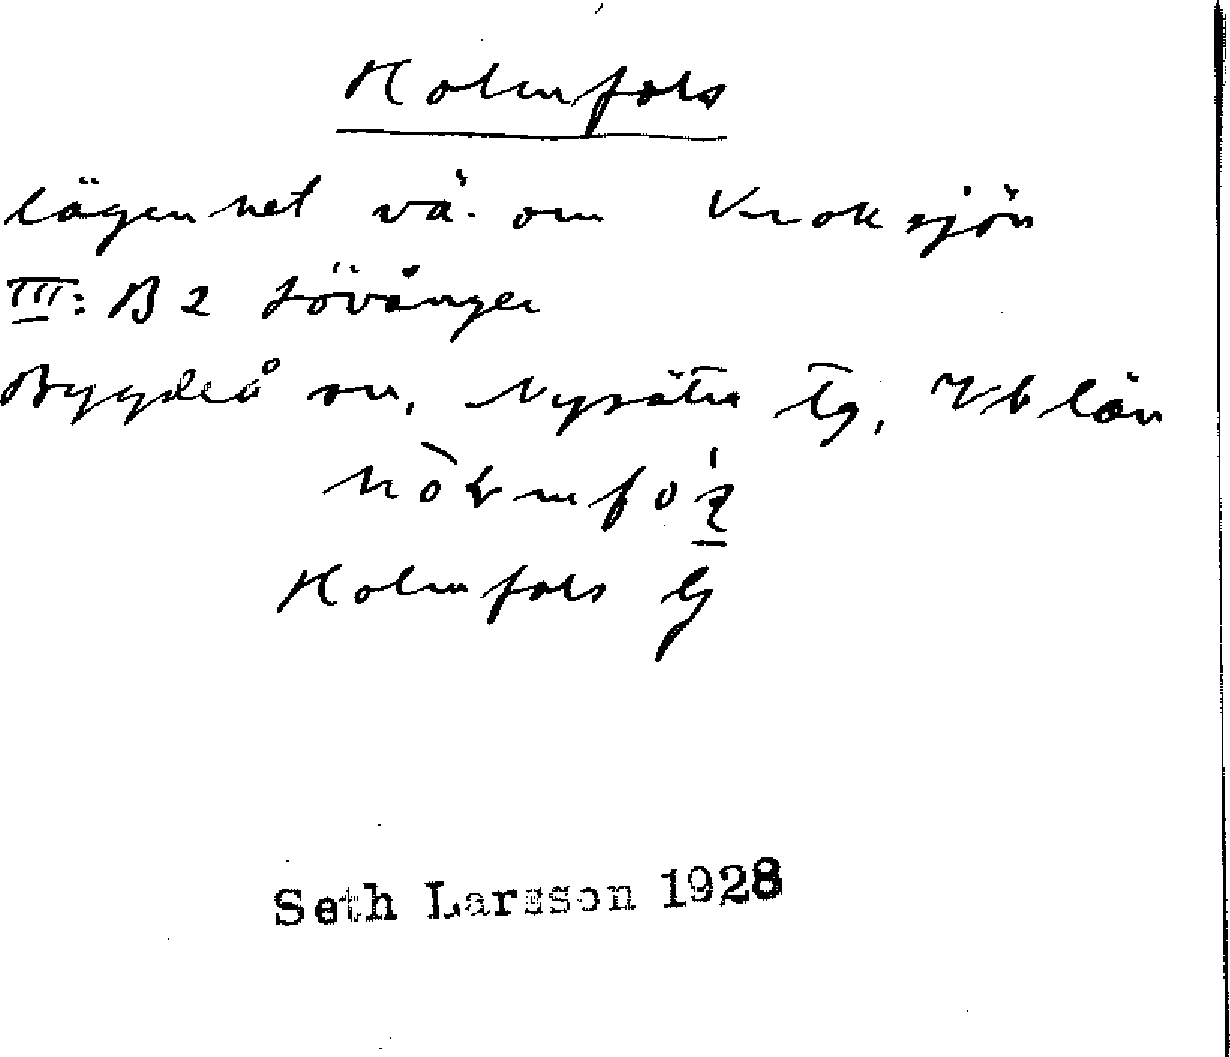 Holmfors
lägenhet vä. om Kroksjön
III: B 2 Lövånger
Bygdeå sn, Nysätra tg, Vb län
Holmfors
Seth Larsson 1928